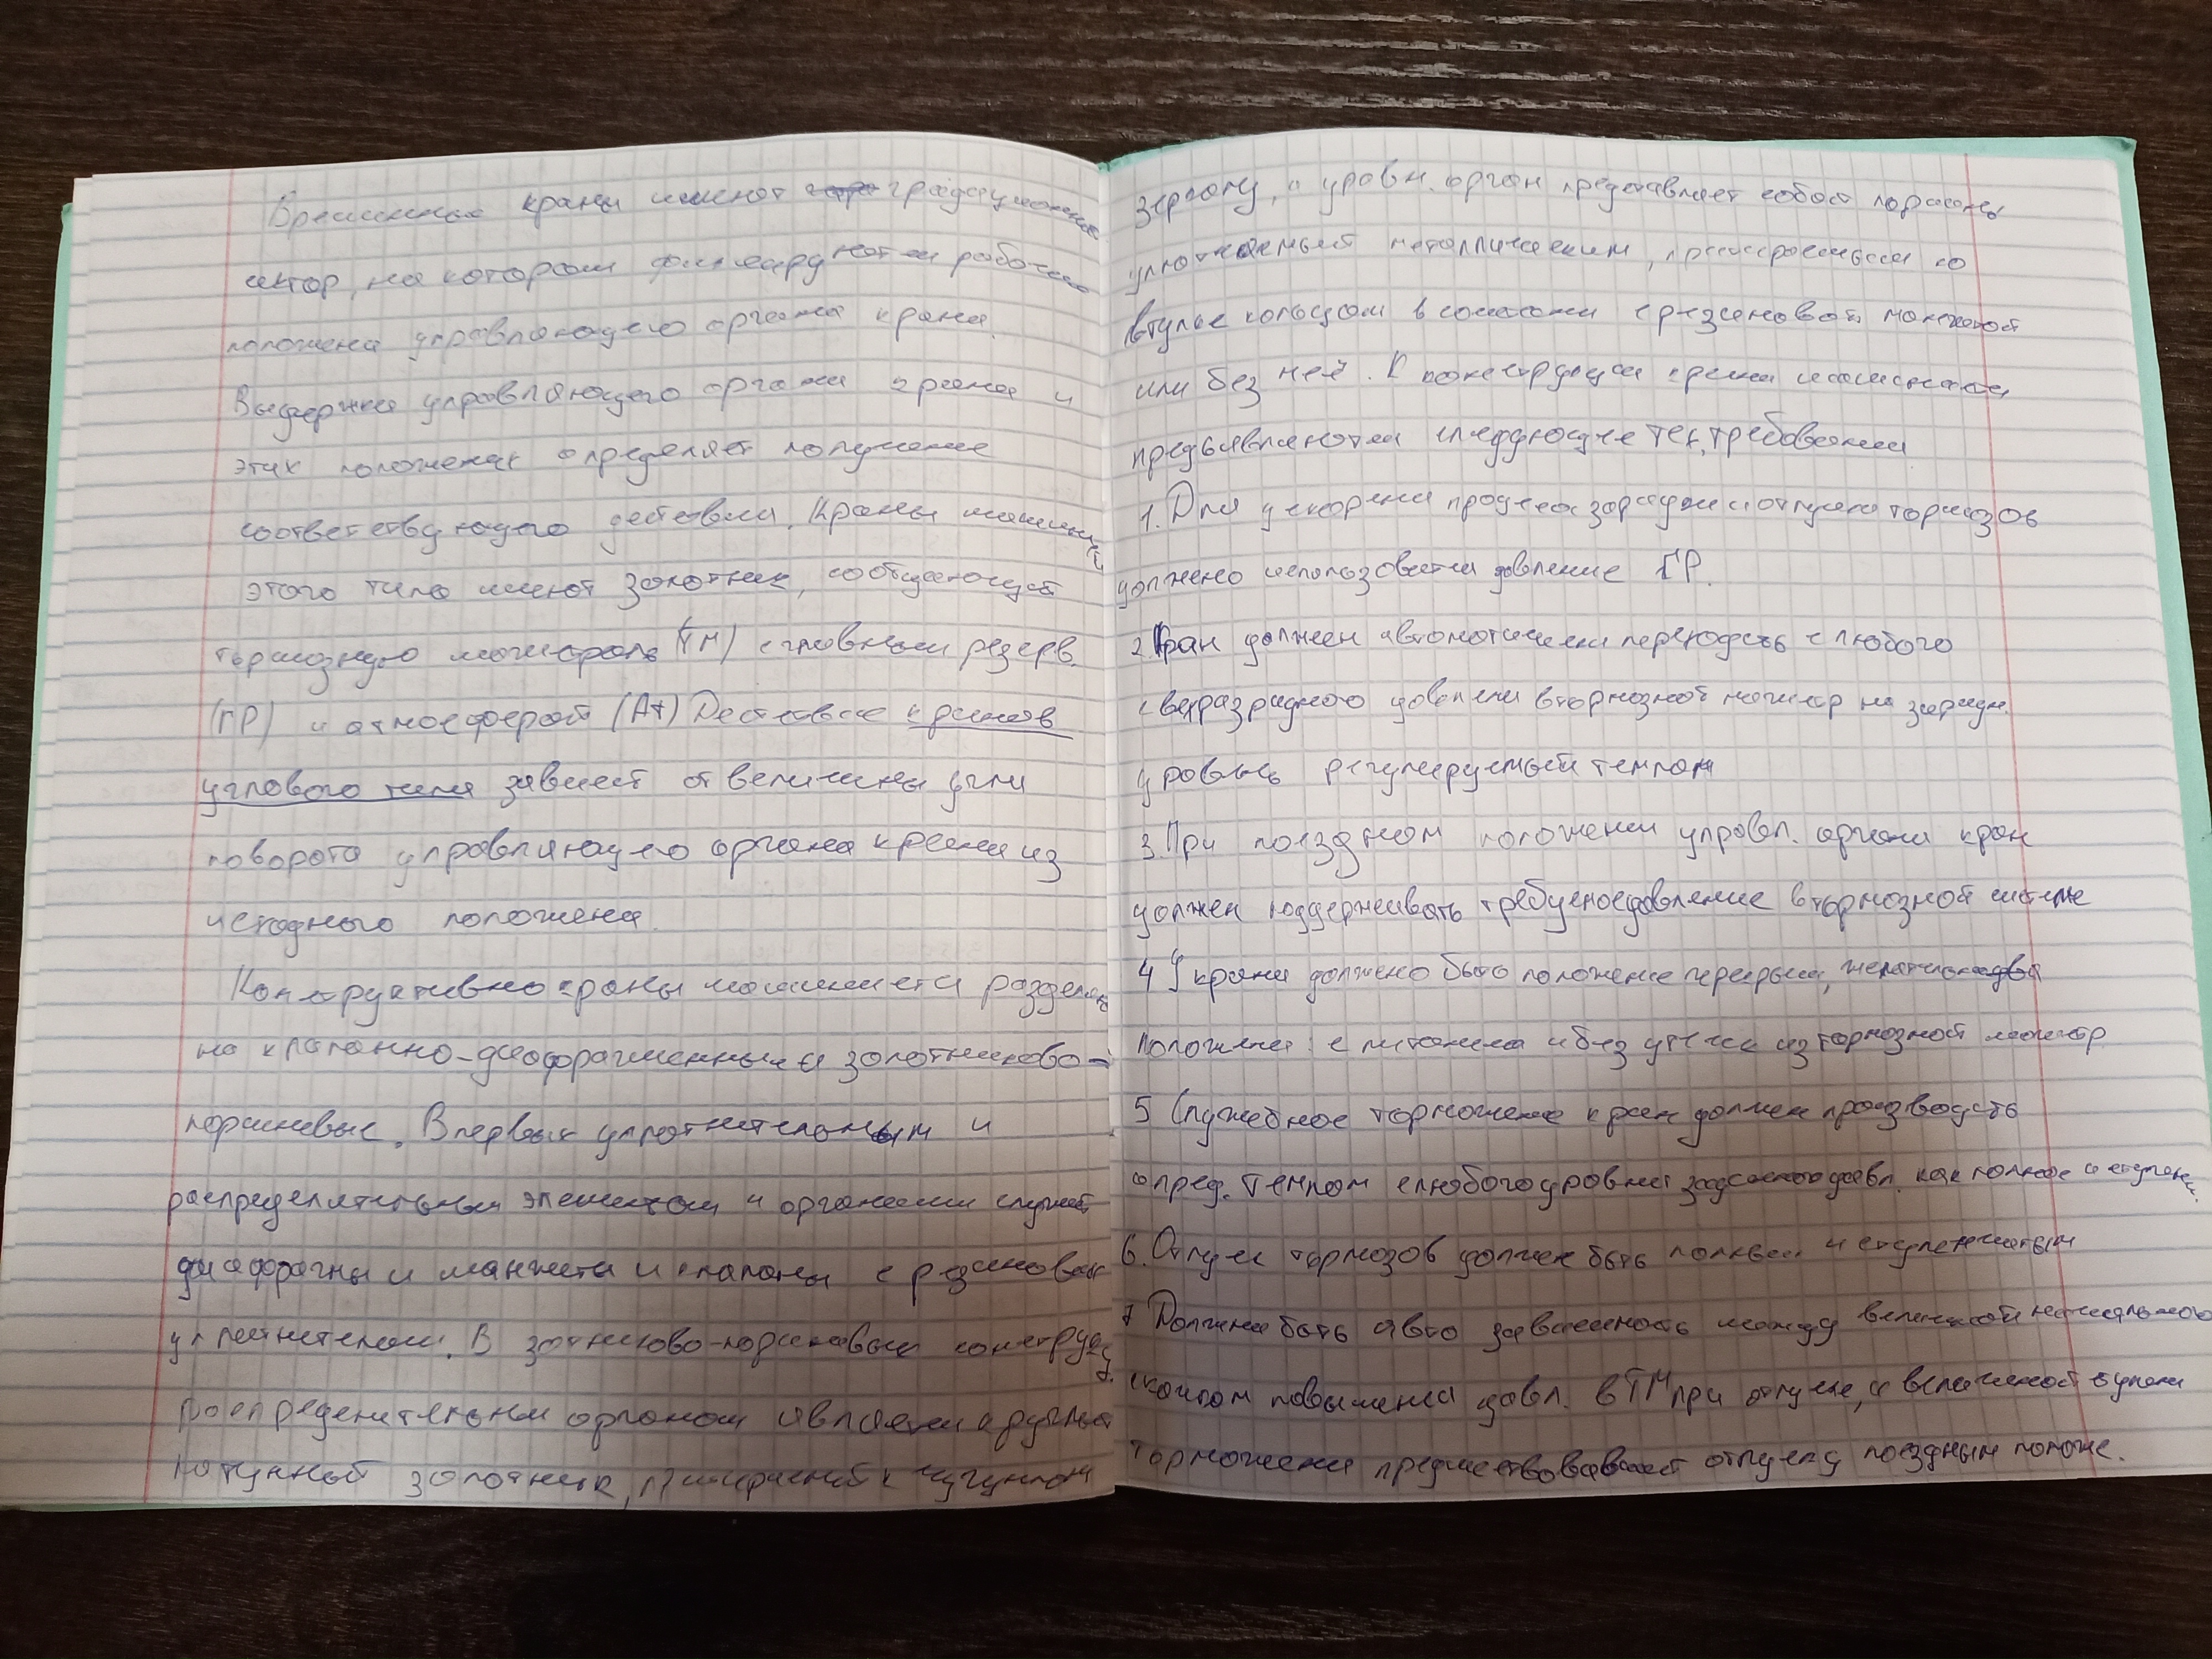 Временные краны имеют градационные
сектор, на котором фиксируются рабочие
положена управляющего органа крана.
Выдержка управляющего органа крана и
этих положениях определяет получение
соответствующего действия. Краны машинис.
этого типа имеют золотник, сообщающий
тормозную магистраль (ТМ) с главным резерв.
(ГР) и атмосферой (Ат) Действие кранов
углового типа зависит от величины угла
поворота управляющего органа крана из
исходного положена.
Конструктивно краны машиниста разделен
на клапанно-диафрагменные и золотниково-
поршневые. В первых уплотнительным и
распределительным элементом и органами служат
диафрагмы и манжета и клапаны с резиновым
уплотнителем. В золтниково-поршневых конструкц.
распределительным органом является круглый
латунный золотник, притёртый к чугунном
зеркалу, а уравн. орган представляет собой поршень
уплотняемый металлическим, притёртым по
втулке кольцом в сочетании с резиновой манжетой
или без неё. К конструкции крана машиниста
предъявляются следующие тех. требования
1. Для ускорения процесса зарядки и отпуска тормозов
должено использоватся давление ГР.
2. Кран должен автоматически переходить с любого
сверхзарядного давления в тормозной магистр на зарядн.
уровень регулируемый темпом
3. При поездном положении управл. органа кран
должен поддерживать требуемое давление в тормозной системе
4 У крана должено быть положение перекрыши, желательно два
положения: с питанием и без утечек из тормозной магистр
5 Служебное торможение кран должен производить
опред. темпом с любого уровня зарядного давл. как полное и ступенч.
6. Отпуск тормозов должен быть полным и ступенчатым
7 Должна быть авто зависимость между величиной начального
скачком повышения давл. в ТМ при отпуске, и величиной ступени
торможения предшествовавшей отпуску поездным положе.